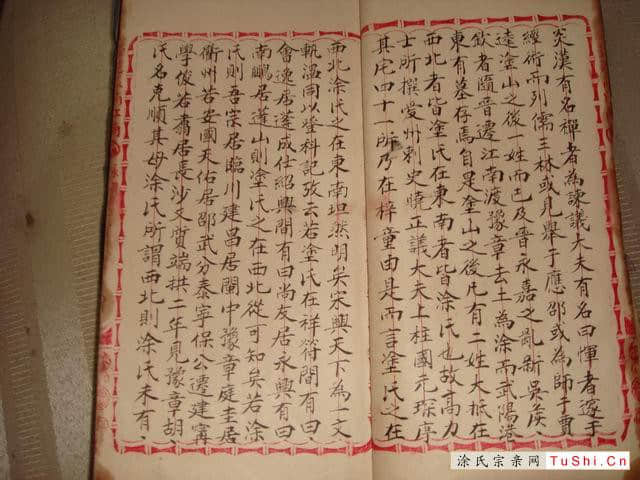 炎漢有名禪者為諫議大夫有名曰惲者遂于
經術而列儒三林或見舉于應邵或為師于賈
逵塗山之後一姓而已及晉永嘉之亂新吳侯、
欽者隨晉遷江南渡豫章去土為涂而武陽港
東有墓存焉自是塗山之後凡有二姓大抵在
西北者皆塗氏在東南者皆涂氏也故高力
士所撰愛州刺史曉正議大夫上柱國元琛序
其宅四十一所乃在梓童由是而言塗氏之在
西北涂氏之在東南坦然明矣宋興天下為一文
軌溫同以登科記孜云若塗氏在祥符間有曰、
會逸居蓬成仕紹興間有曰尚友居永興有曰
南鵬居蓬山則塗氏之在西北從可知矣若涂
氏則吾宗居臨川建昌居閩中豫章庭圭居
衢州若安國天佑居邵武分泰寧保公遷建寧
學俊若肅居長沙文質端拱二年見豫章胡、
氏名克順其母涂氏所謂西北則涂氏未有、
涂氏宗亲网 TuShi.Cn